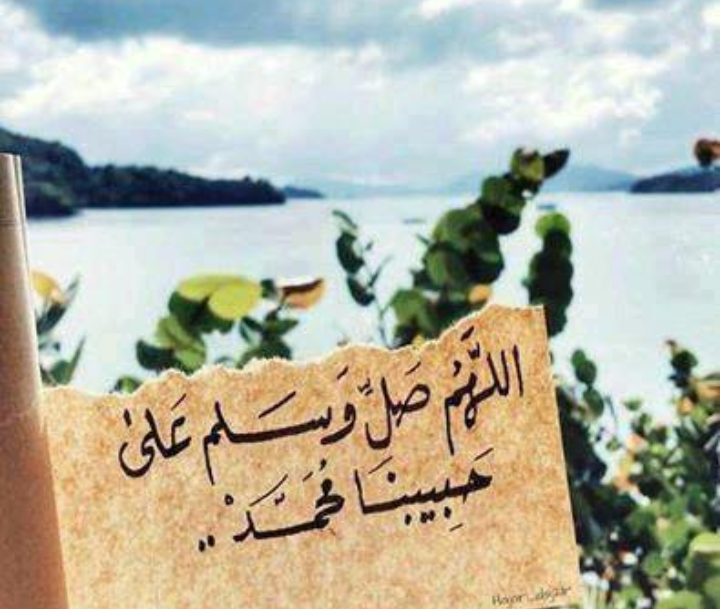 اللَّهُمَّ صَلِّ وَسَلم عَلىٰ
حَبِيبنَا مُحَمَّدَْ ..